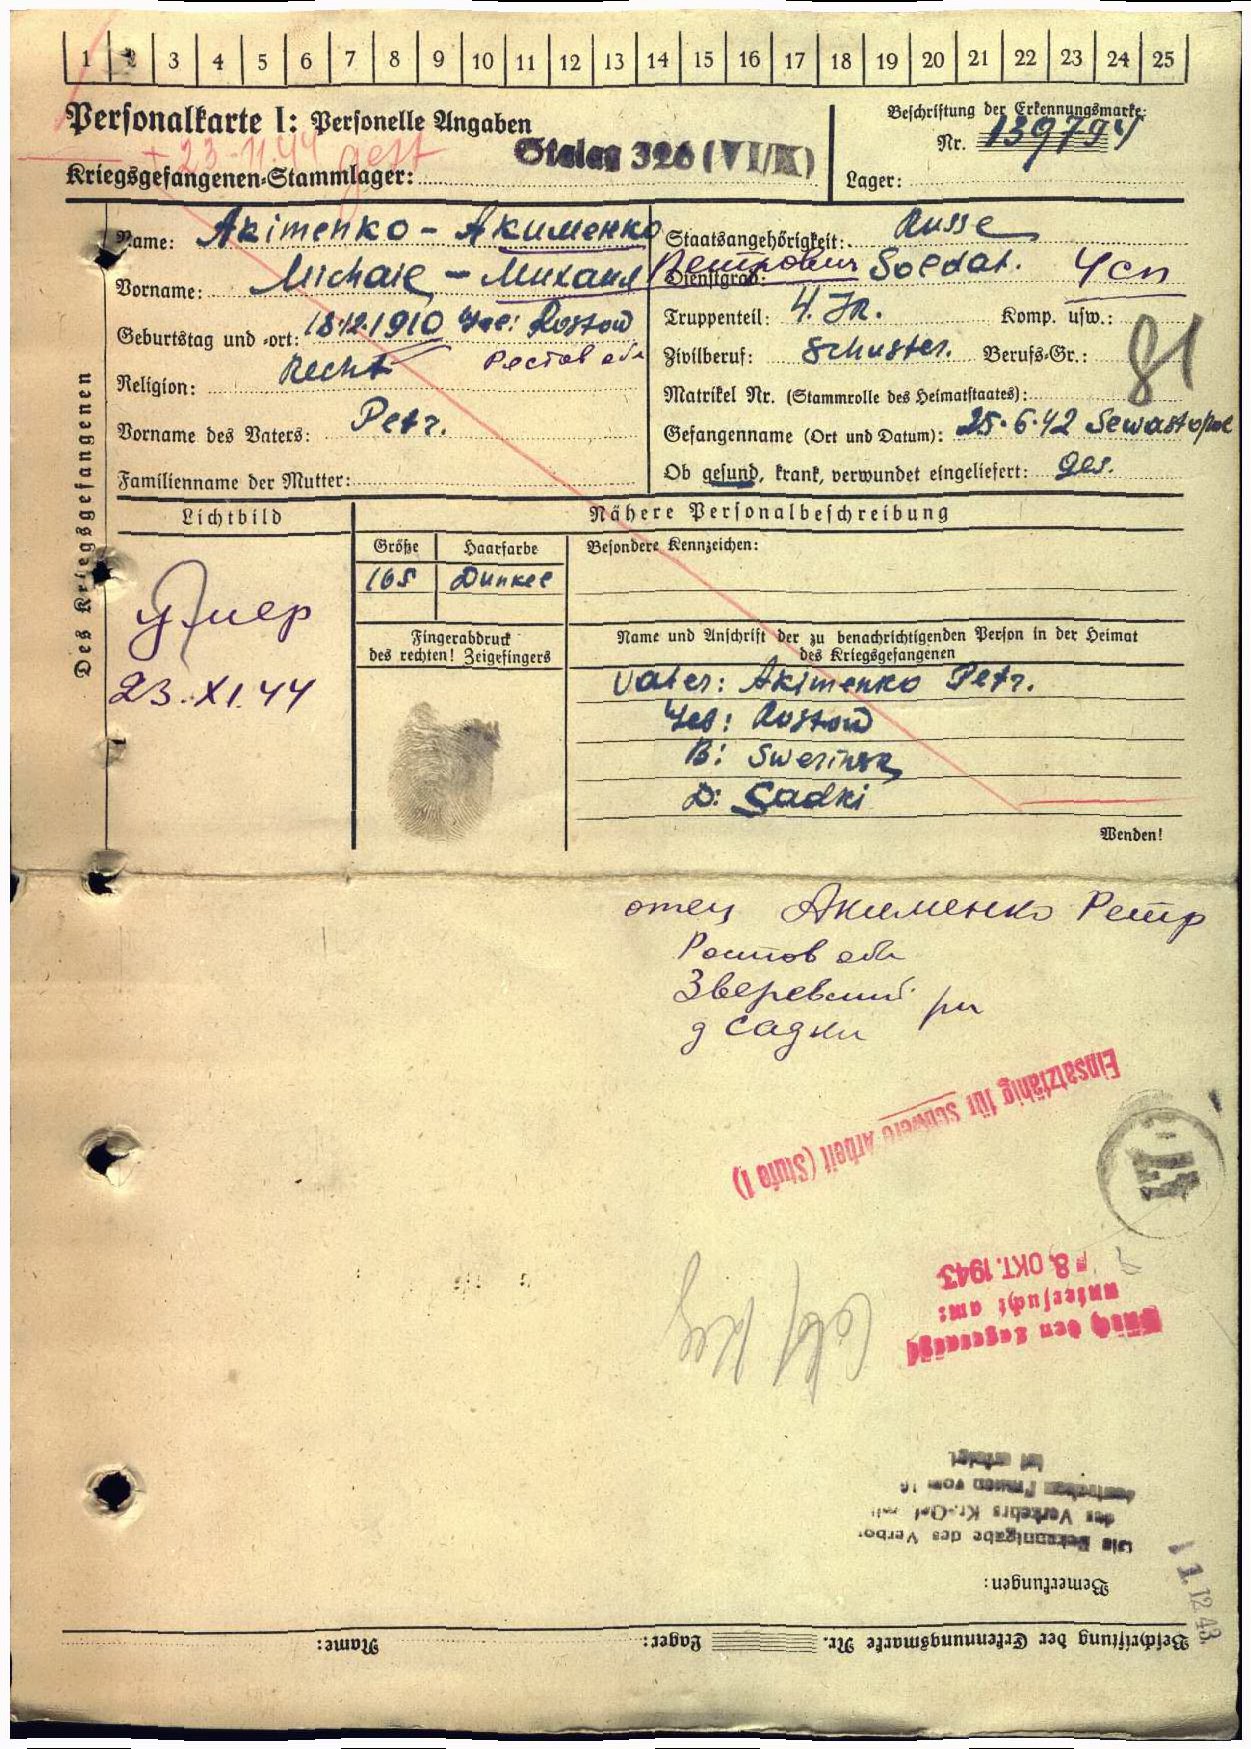 1 2 3 4 5 6 7 8 9 10 11 12 13 14 15 16 17 18 19 20 21 22 23 24 25
Personalkarte I: Personelle Angaben
Beschriftung der Erkennungsmarke:
Nr. 139794
+ 23.11.44 gest
Stalag 326 (VI/K)
Kriegsgefangenen-Stammlager:
Lager:
Des Kriegsgefangenen
Name: Akimenko - Акименко
Staatsangehörigkeit: Russe
Vorname: Michail - Михаил Петрович
Dienstgrad: Soldat. 4сп
Geburtstag und -ort: 18.12.1910 Geb: Rostow
Ростов обл
Truppenteil: 4. JR. Komp. usw.:
Zivilberuf: Schuster. Berufs-Gr.:
81
Religion: Recht.
Matrikel Nr. (Stammrolle des Heimatstaates):
Vorname des Vaters: Petr.
Gefangenname (Ort und Datum): 25.6.42 Sewastopol
Familienname der Mutter:
Ob gesund, krank, verwundet eingeliefert: ges.
Lichtbild
Nähere Personalbeschreibung
Größe Haarfarbe Besondere Kennzeichen:
165 Dunkel
умер
23.XI.44
Fingerabdruck
des rechten! Zeigefingers
Name und Anschrift der zu benachrichtigenden Person in der Heimat
des Kriegsgefangenen
Vater: Akimenko Petr.
Geb: Rostow
B: Swerinsk
D: Sadki
Wenden!
отец Акименко Петр
Ростов обл
Зверевский рн
д Садки
Einsatzfähig für schwere Arbeit (Stufe 1)
Durch den Lagerarzt
untersucht am:
- 8. OKT. 1943
Die Bekanntgabe des Verbo
des Verkehrs Kr.-Gef. mit
deutschen Frauen vom 16
ist erfolgt
11.12.43.
Bemerkungen:
Beschriftung der Erkennungsmarke Nr. Lager: Name: